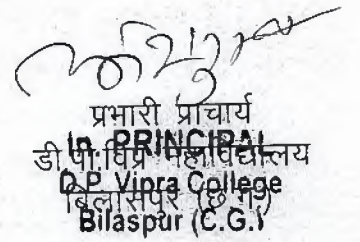 प्रभारी प्राचार्य
In. PRINCIPAL
डी.पी.विप्र महाविद्यालय
D.P. Vipra College
बिलासपुर (छ.ग.)
Bilaspur (C.G.)